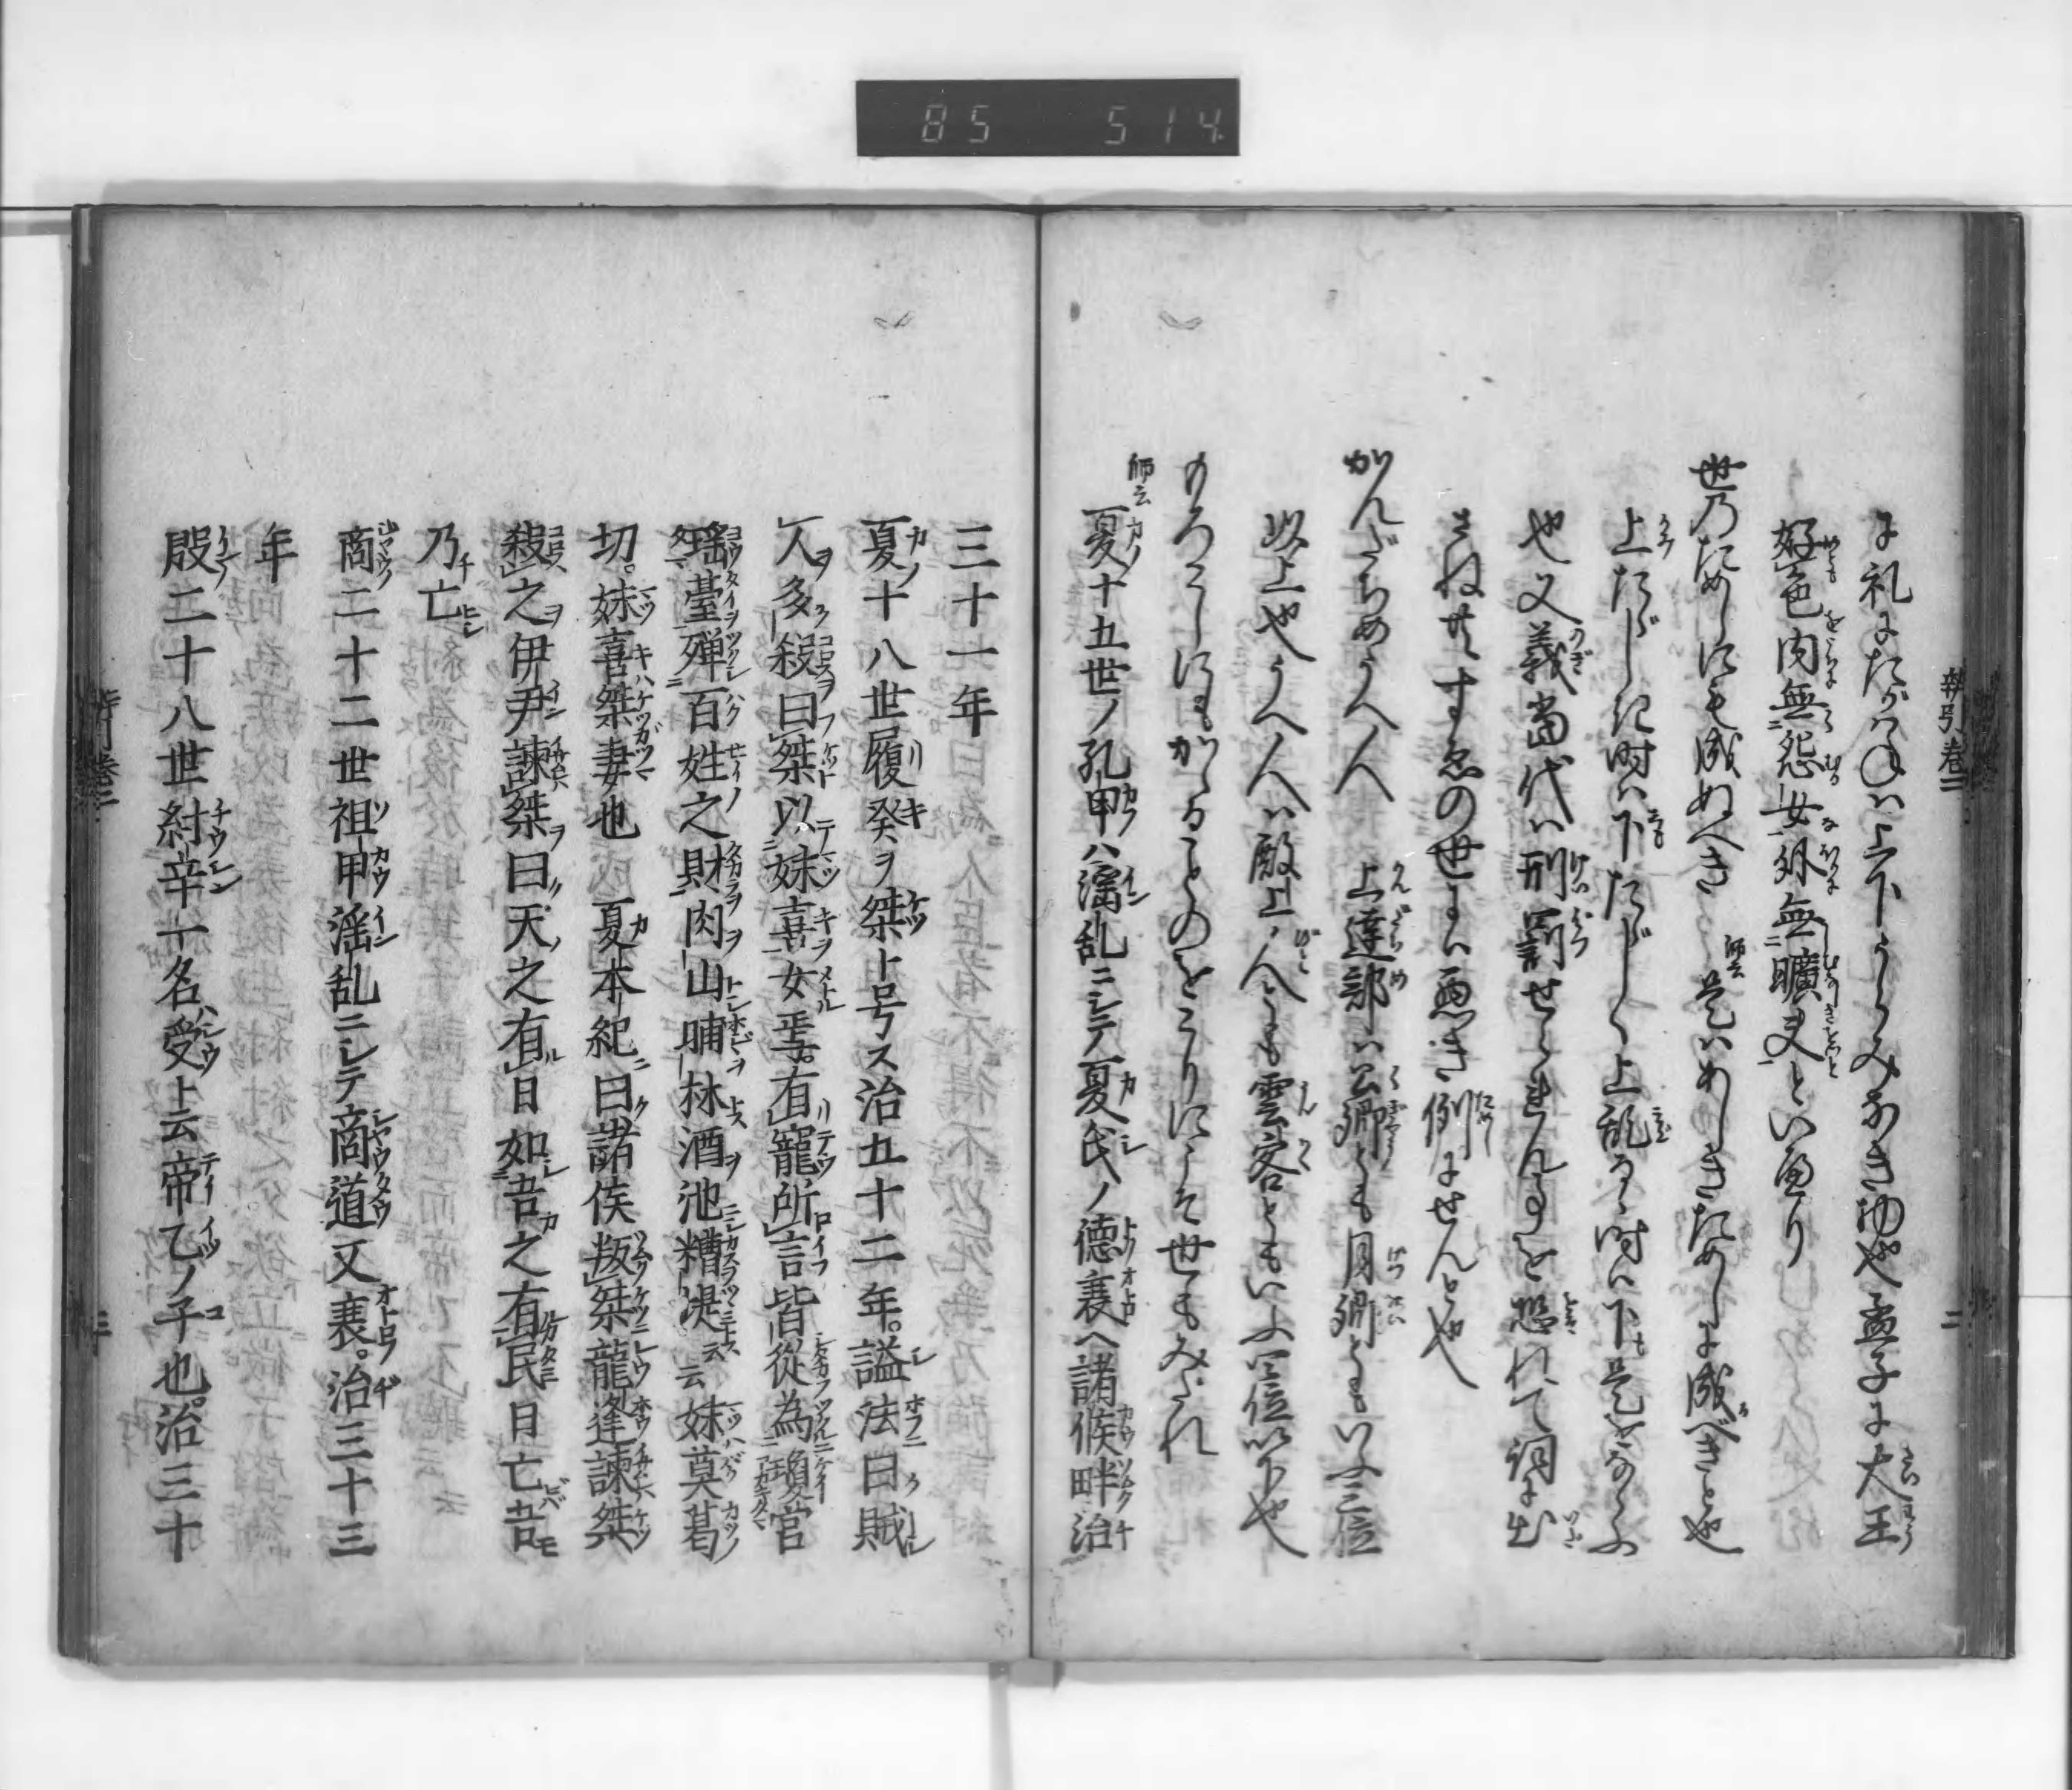 85 514
に礼にたがはねは上下うらみなき物也孟子に大王
好色内無怨女外無曠夫といへり
世乃ためしにも成ぬへき 師云是はめしきためしに成べきと也
上たゞしき時は下たゞしく上乱るゝ時は下是をならふ
也又義當代は刑罰せられんことを恐れて詞に出
さね共すゑの世には悪き例にせんと也
かんだちめうへ人 上達部は公卿とも月卿ともいふ三位
以上也うへ人は殿上人とも雲客ともいふ四位以下也
もろこしにもかゝることのをこりにこそ世もみだれ
師云 夏十五世ノ孔甲ハ滛乱ニシテ夏氏ノ徳衰ヘ諸候畔治
三十一年
夏十八世履癸ヲ桀ト号ス治五十二年。謚法曰賊
人多殺曰桀以妹喜女焉。有寵所言皆従為瓊宮
瑶臺殫百姓之財肉山脯林酒池糟淇云云妹莫葛
切。妹喜桀妻也 夏本紀曰諸侯叛桀龍逢諫桀
殺之伊尹諫桀曰天之有日如吾之有民日亡吾
乃亡
商二十二世祖甲滛乱ニシテ商道又衰。治三十三
年
殷二十八世紂辛一名受ト云帝乙ノ子也。治三十